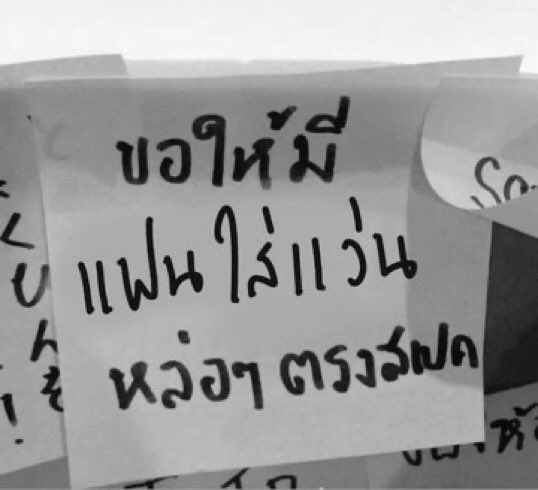 ขอให้มี
แฟนใส่แว่น
หล่อๆ ตรงสเปค
So